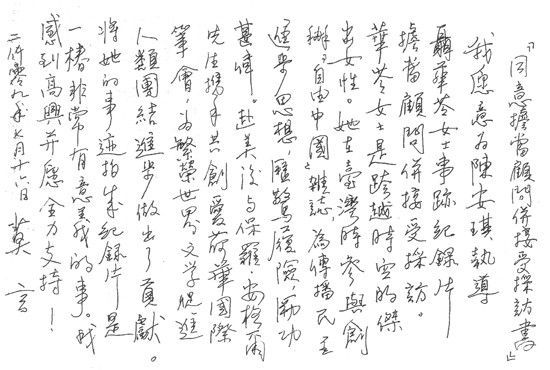 『同意擔當顧問併接受採訪書』
我愿意为陳安琪執導
聶華苓女士事跡紀錄片
擔當顧問併接受採訪。
華苓女士是跨越時空的傑
出女性。她在臺灣時參與創
辦『自由中國』雜誌，為傳播民主
進步思想，履驚履險，勵功
甚偉。赴美後与保羅·安格爾
先生攜手共創愛荷華國際
筆會，为繁榮世界文学促進
人類團結進步做出了貢獻。
將她的事迹拍成紀録片是
一樁非常有意義的事。我
感到高興并愿全力支持！
二〇零九年七月廿六日 莫言